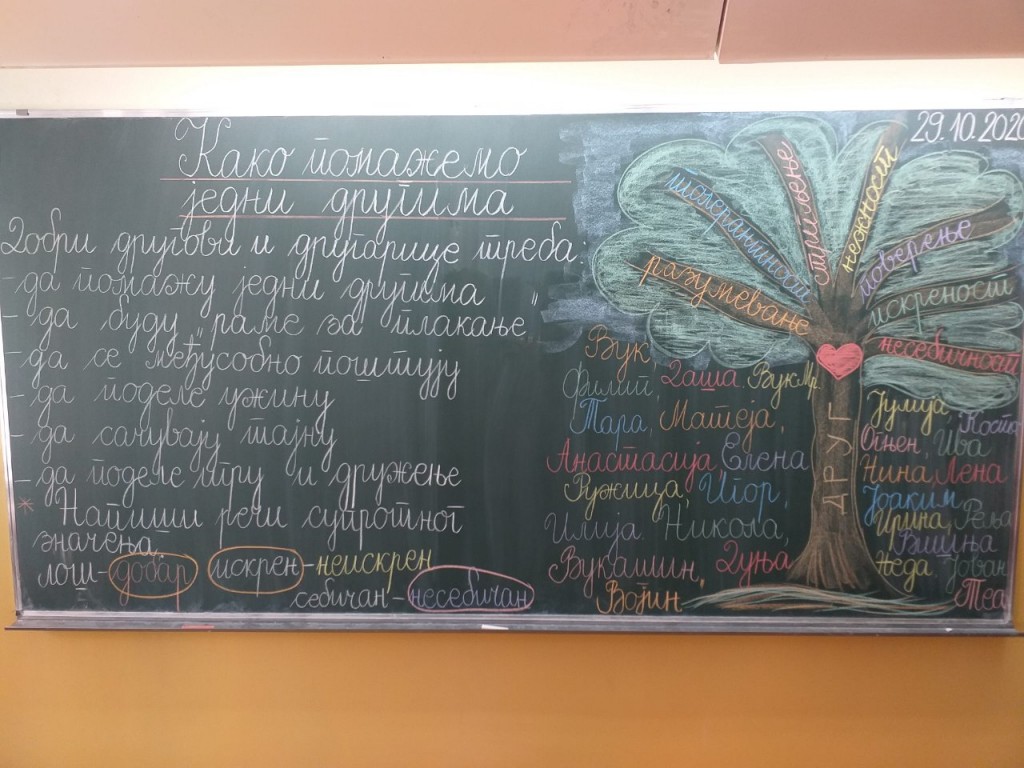 Како помажемо
једни другима
29.10.2020
Добри другови и другарице треба:
- да помажу једни другима
- да буду "раме за плакање"
- да се међусобно поштују
- да поделе ужину
- да сачувају тајну
- да поделе игру и дружење
* Напиши речи супротног
значења.
лош - добар искрен - неискрен
себичан - несебичан
разумевање
толерантност
стрпљење
нежност
поверење
искреност
несебичност
ДРУГ
Вук
Филип, Даша, Вук Мр.
Тара, Матеја,
Анастасија Јелена
Ружица, Игор,
Илија. Никола,
Вукашин, Дуња
Војин
Јулија, Коста
Огњен, Ива
Нина, Лена
Јоаким
Ирина, Реља
Вишња
Неда, Јован
Теа